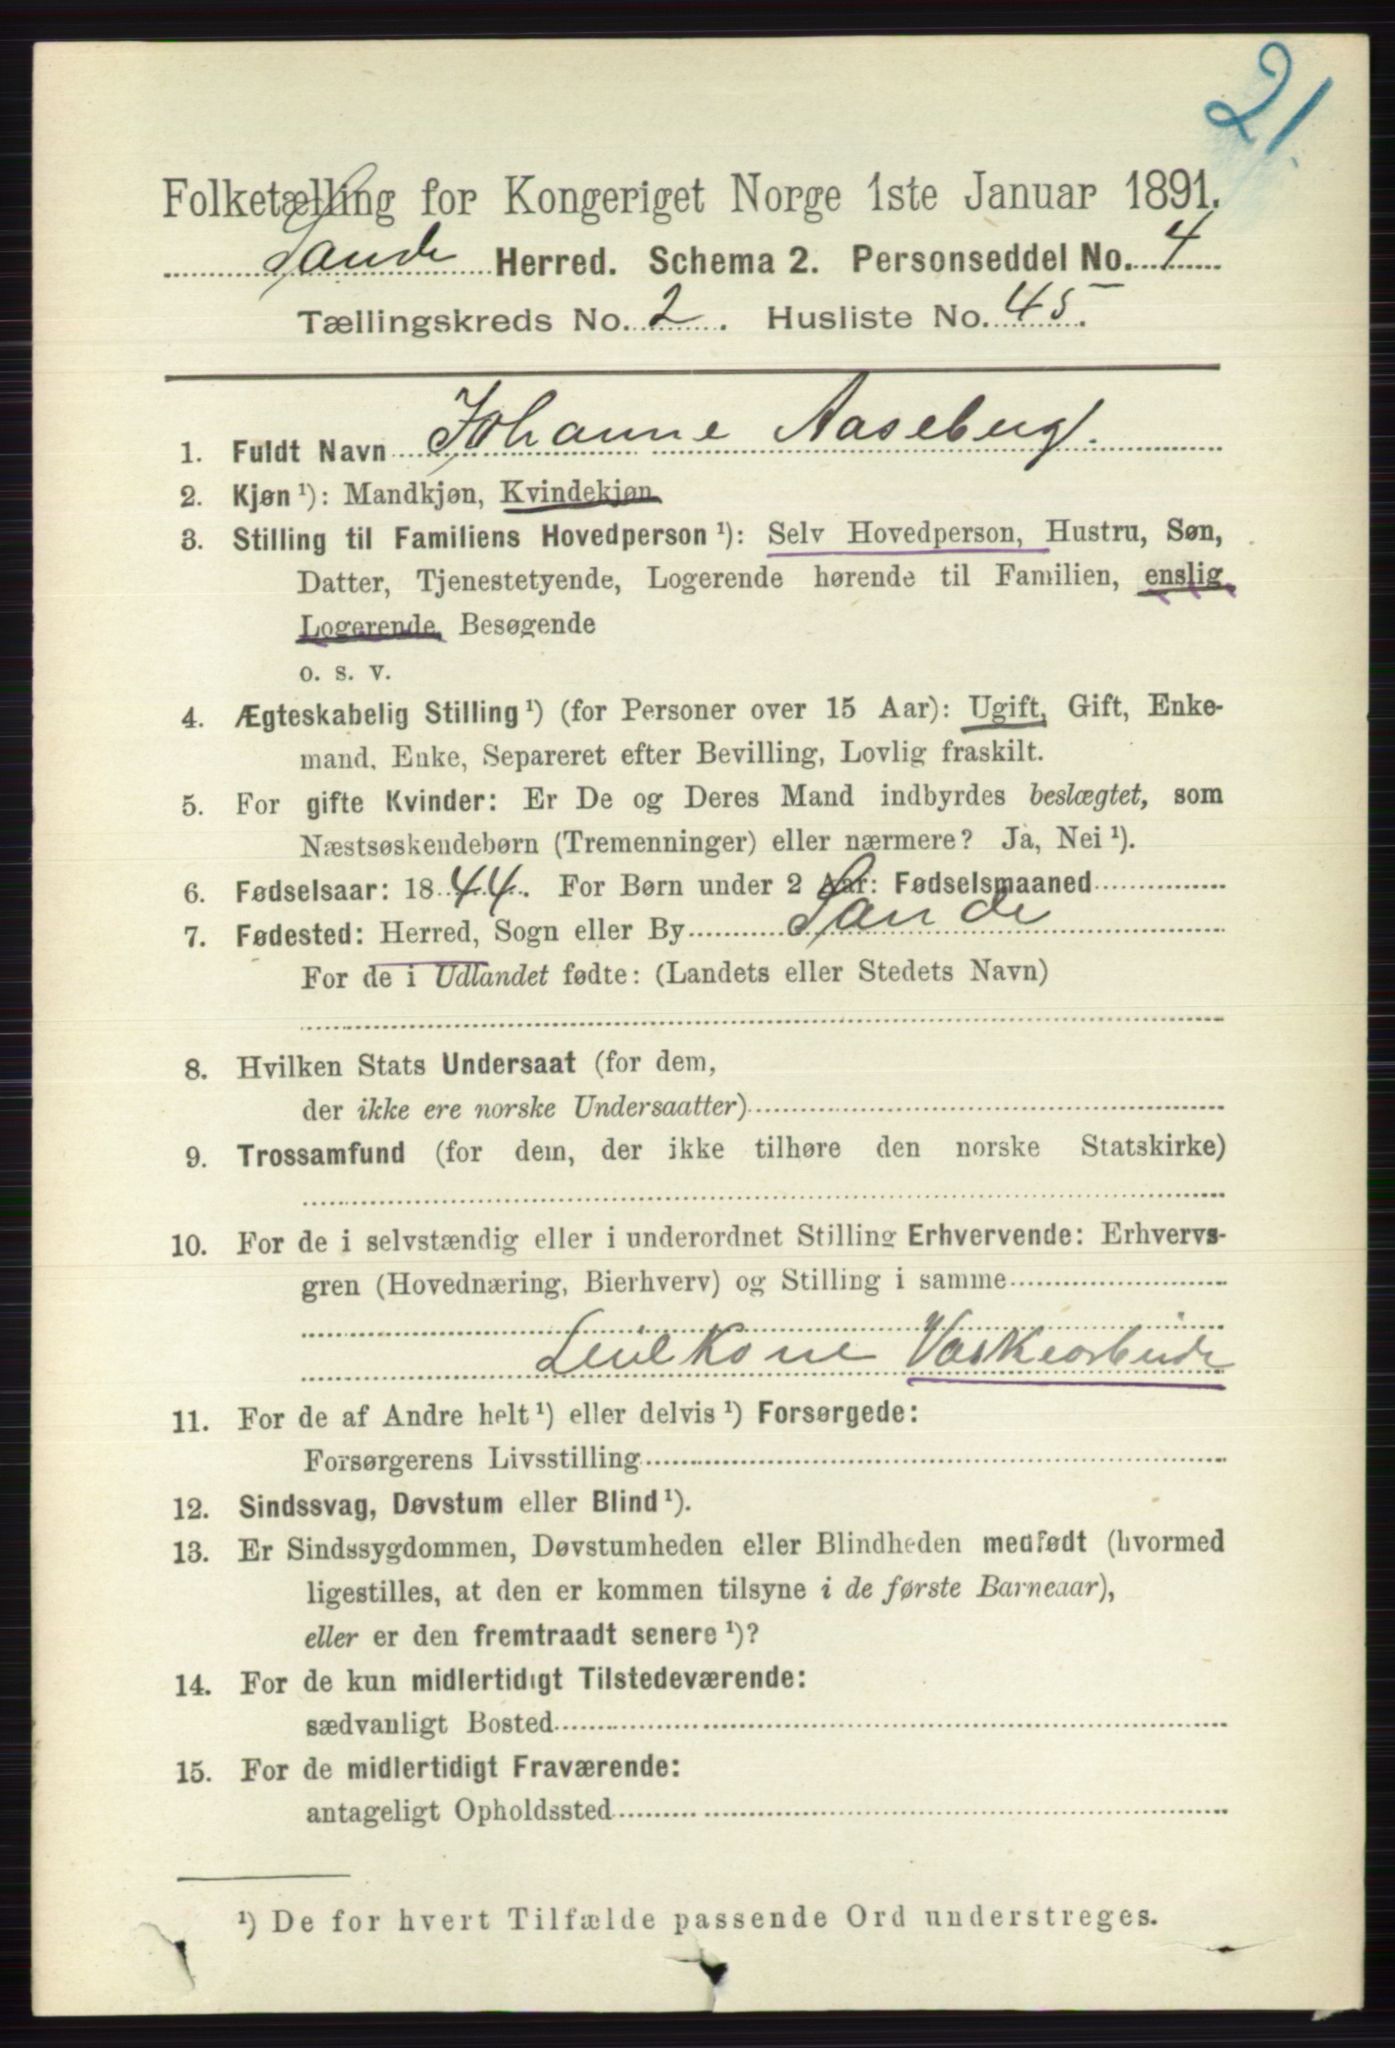 21.
Folketælling for Kongeriget Norge 1ste Januar 1891.
Sande Herred. Schema 2. Personseddel No. 4
Tællingskreds No. 2. Husliste No. 45.
1. Fuldt Navn Johanne Aaseberg.
2. Kjøn ¹): Mandkjøn, Kvindekjøn.
3. Stilling til Familiens Hovedperson ¹): Selv Hovedperson, Hustru, Søn,
Datter, Tjenestetyende, Logerende hørende til Familien, enslig
Logerende, Besøgende
o. s. v.
4. Ægteskabelig Stilling ¹) (for Personer over 15 Aar): Ugift, Gift, Enke-
mand, Enke, Separeret efter Bevilling, Lovlig fraskilt.
5. For gifte Kvinder: Er De og Deres Mand indbyrdes beslægtet, som
Næstsøskendebørn (Tremenninger) eller nærmere? Ja, Nei ¹).
6. Fødselsaar: 1844. For Børn under 2 Aar: Fødselsmaaned
7. Fødested: Herred, Sogn eller By Sande
For de i Udlandet fødte: (Landets eller Stedets Navn)
8. Hvilken Stats Undersaat (for dem,
der ikke ere norske Undersaatter)
9. Trossamfund (for dem, der ikke tilhøre den norske Statskirke)
10. For de i selvstændig eller i underordnet Stilling Erhvervende: Erhvervs-
gren (Hovednæring, Bierhverv) og Stilling i samme
Leiekone Vaskearbeide
11. For de af Andre helt ¹) eller delvis ¹) Forsørgede:
Forsørgerens Livsstilling
12. Sindssvag, Døvstum eller Blind ¹).
13. Er Sindssygdommen, Døvstumheden eller Blindheden medfødt (hvormed
ligestilles, at den er kommen tilsyne i de første Barneaar),
eller er den fremtraadt senere ¹)?
14. For de kun midlertidigt Tilstedeværende:
sædvanligt Bosted
15. For de midlertidigt Fraværende:
antageligt Opholdssted
¹) De for hvert Tilfælde passende Ord understreges.